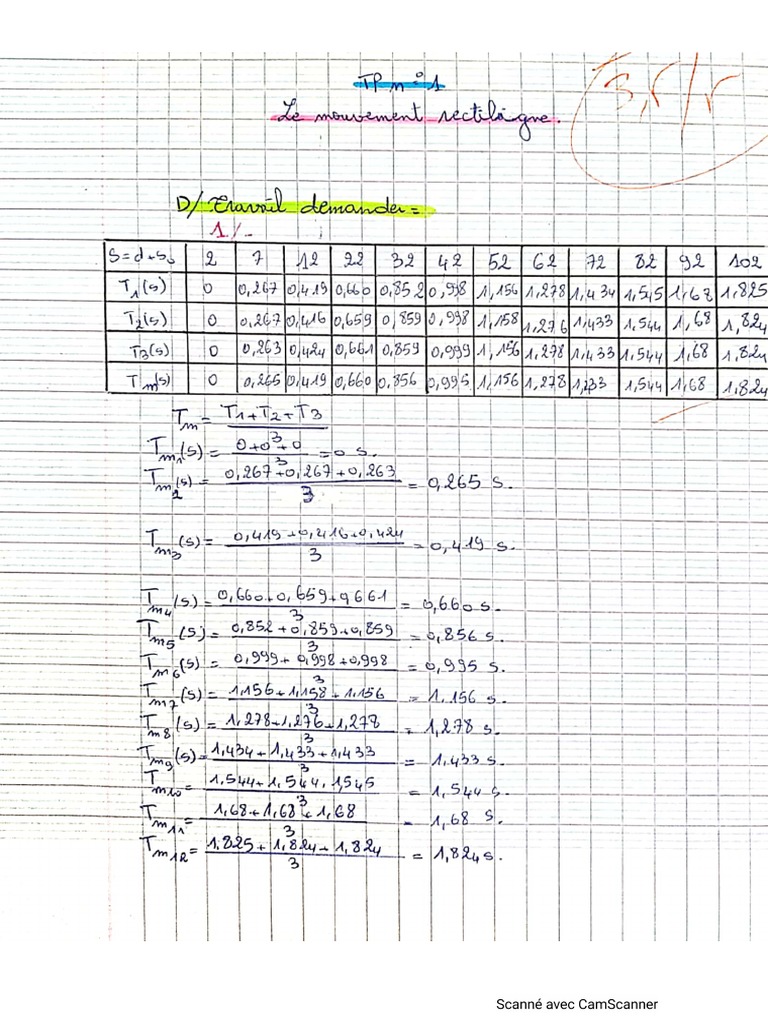 TP n°1
Le mouvement rectiligne.
3,5/5
D/ Travail demander =
1/-
S = d+S₀ 2 7 12 22 32 42 52 62 72 82 92 102
T₁(s) 0 0,267 0,419 0,660 0,852 0,998 1,156 1,278 1,434 1,545 1,68 1,825
T₂(s) 0 0,267 0,416 0,659 0,859 0,998 1,158 1,276 1,433 1,544 1,68 1,824
T₃(s) 0 0,263 0,424 0,661 0,859 0,999 1,156 1,278 1,433 1,544 1,68 1,824
Tm(s) 0 0,265 0,419 0,660 0,856 0,995 1,156 1,278 1,433 1,544 1,68 1,824
Tm = T₁+T₂+T₃ / 3
Tm₁(s) = 0+0+0 / 3 = 0 s.
Tm₂(s) = 0,267+0,267+0,263 / 3 = 0,265 s.
Tm₃(s) = 0,419+0,416+0,424 / 3 = 0,419 s.
Tm₄(s) = 0,660+0,659+0,661 / 3 = 0,660 s.
Tm₅(s) = 0,852+0,859+0,859 / 3 = 0,856 s.
Tm₆(s) = 0,999+0,998+0,998 / 3 = 0,995 s.
Tm₇(s) = 1,156+1,158+1,156 / 3 = 1,156 s.
Tm₈(s) = 1,278+1,276+1,278 / 3 = 1,278 s.
Tm₉(s) = 1,434+1,433+1,433 / 3 = 1,433 s.
Tm₁₀ = 1,544+1,544+1,545 / 3 = 1,544 s.
Tm₁₁ = 1,68+1,68+1,68 / 3 = 1,68 s.
Tm₁₂ = 1,825+1,824+1,824 / 3 = 1,824 s.
Scanné avec CamScanner